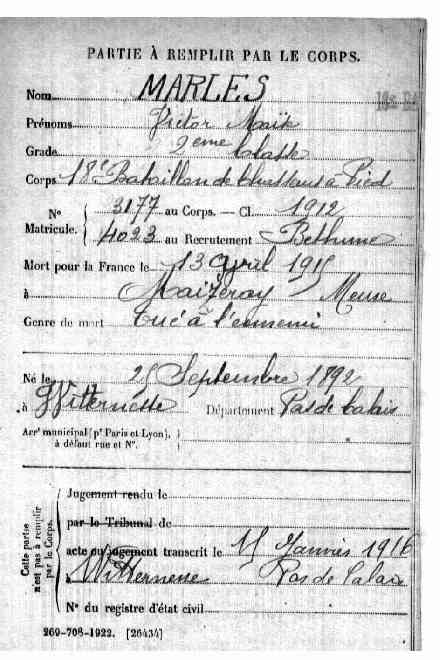 PARTIE À REMPLIR PAR LE CORPS.
Nom MARLES
Prénoms Victor
Grade 2eme Classe
Corps 18e Bataillon de Chasseurs à Pied
N° Matricule. { 3177 au Corps. — Cl. 1912
4023 au Recrutement Bethune
Mort pour la France le 13 Avril 1915
à Maizeray Meuse
Genre de mort Tué à l'ennemi
Né le 25 Septembre 1892
à Witternesse Département Pas de Calais
Arrt municipal (pr Paris et Lyon), à défaut rue et N°. }
Cette partie n'est pas à remplir par le Corps.
Jugement rendu le
par le Tribunal de
acte ou jugement transcrit le 15 Janvier 1916
à Witternesse Pas de Calais
N° du registre d'état civil
269-708-1922. [26434]